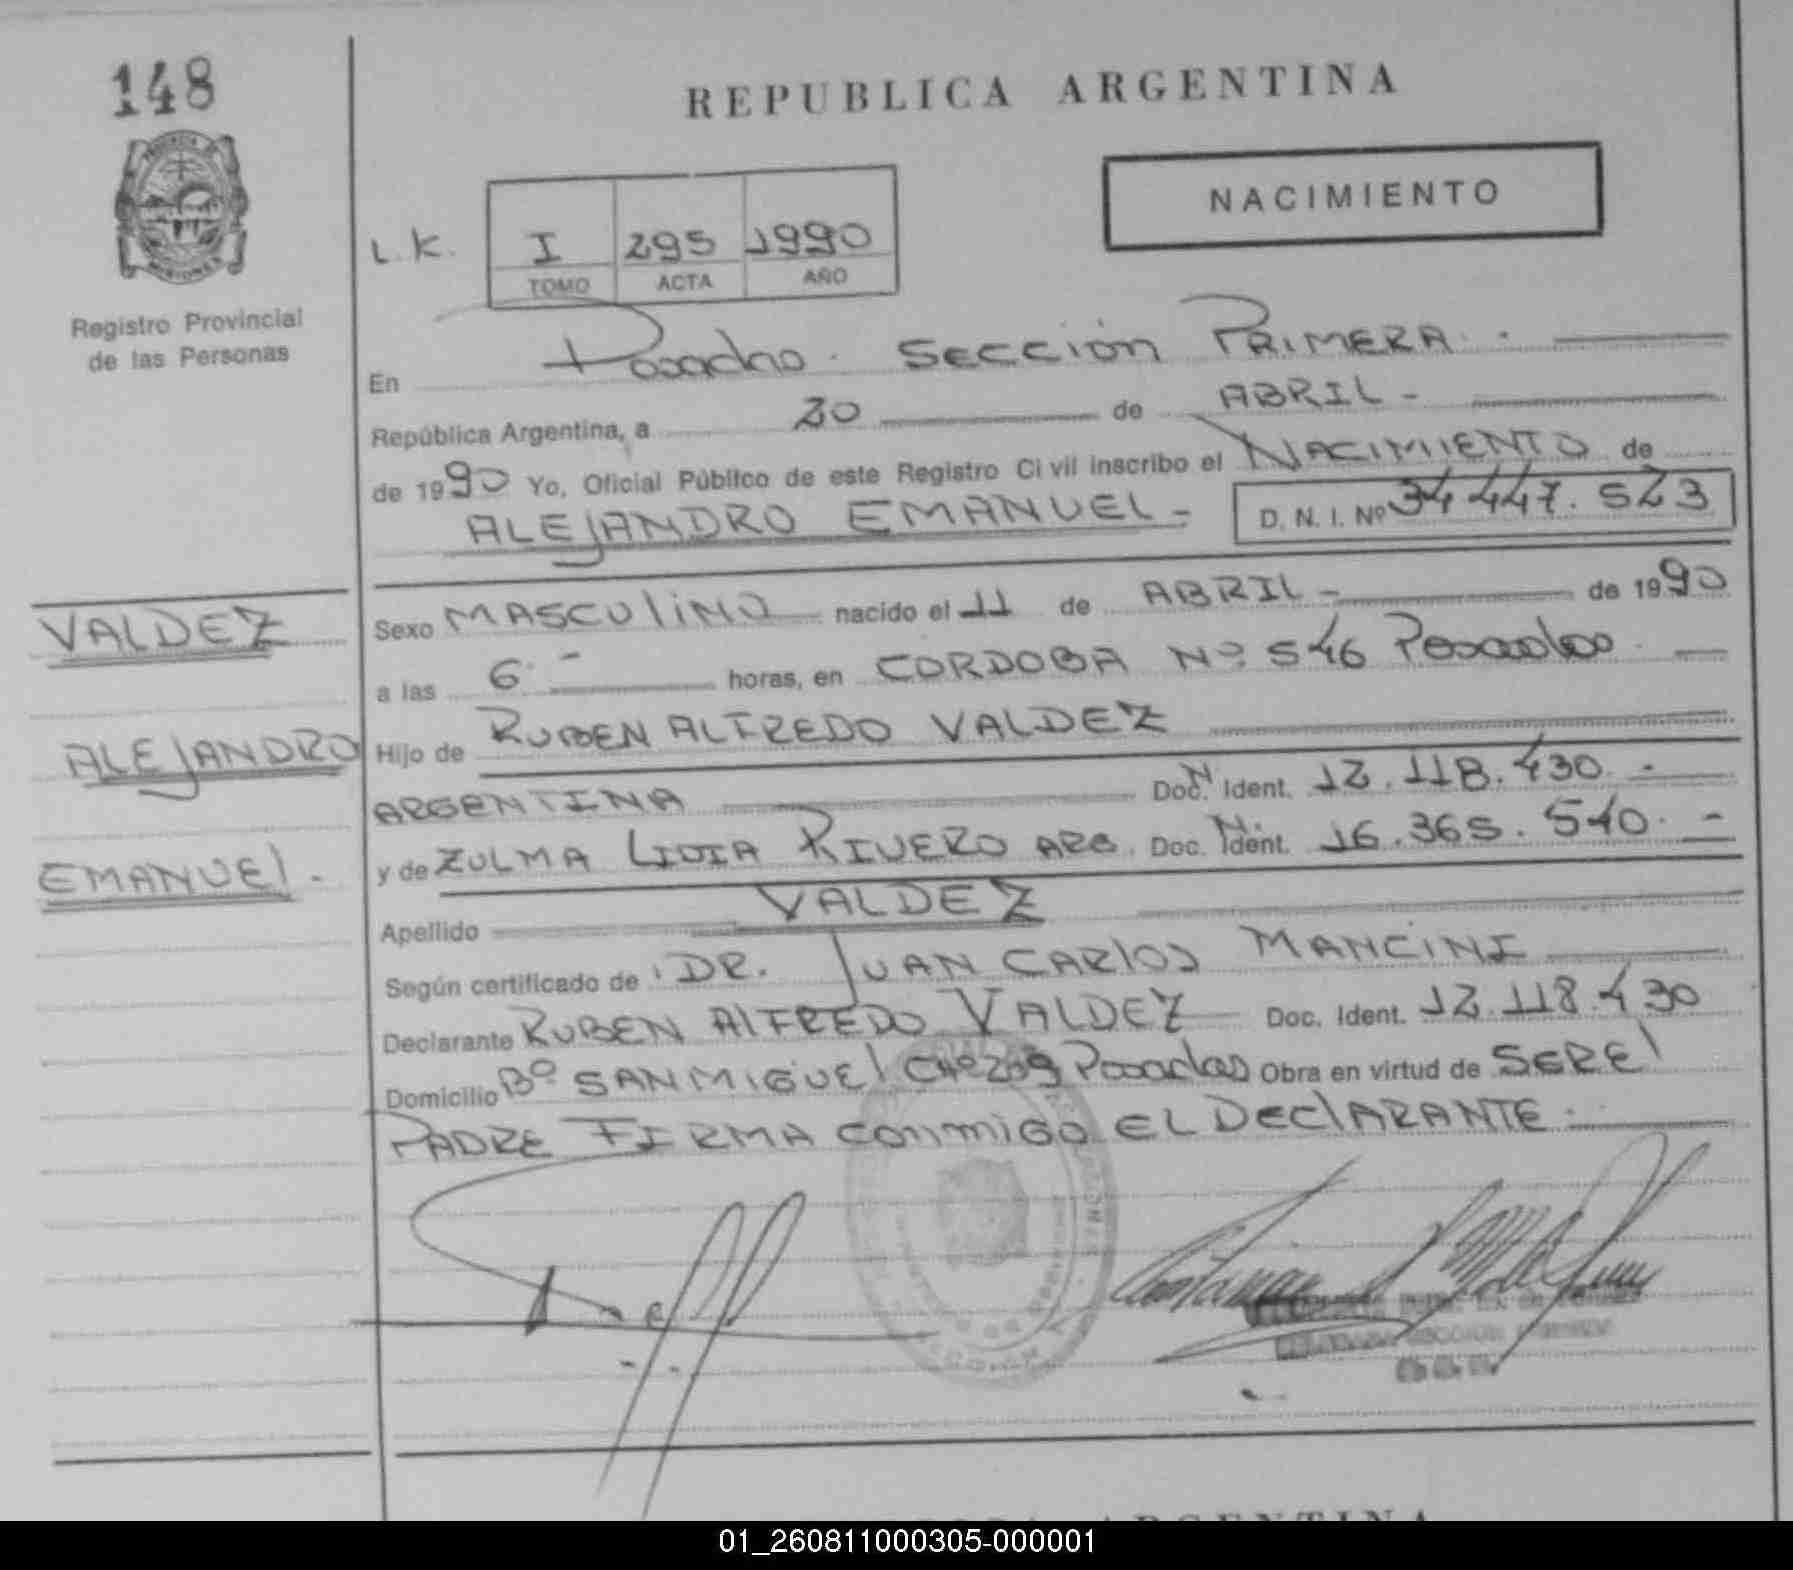 148
REPUBLICA ARGENTINA
NACIMIENTO
L.K.
I 295 1990
TOMO ACTA AÑO
Registro Provincial
de las Personas
En Posadas. SECCION PRIMERA.
República Argentina, a 20 de ABRIL -
de 1990 Yo, Oficial Público de este Registro Civil inscribo el NACIMIENTO de
ALEJANDRO EMANUEL - D. N. I. Nº 34447.523
VALDEZ
ALEJANDRO
EMANUEL.
Sexo MASCULINO nacido el 11 de ABRIL - de 1990
a las 6 - horas, en CORDOBA Nº 546 Posadas
Hijo de RUBEN ALFREDO VALDEZ
ARGENTINA Doc. Ident. 12.118.430. -
y de ZULMA LIDIA RIVERO ARG. Doc. Ident. 16.365.540. -
Apellido VALDEZ
Según certificado de DR. JUAN CARLOS MANCINI
Declarante RUBEN ALFREDO VALDEZ Doc. Ident. 12.118.430
Domicilio Bº SAN MIGUEL Posadas Obra en virtud de SER El
PADRE FIRMA CONMIGO EL DECLARANTE.
01_260811000305-000001